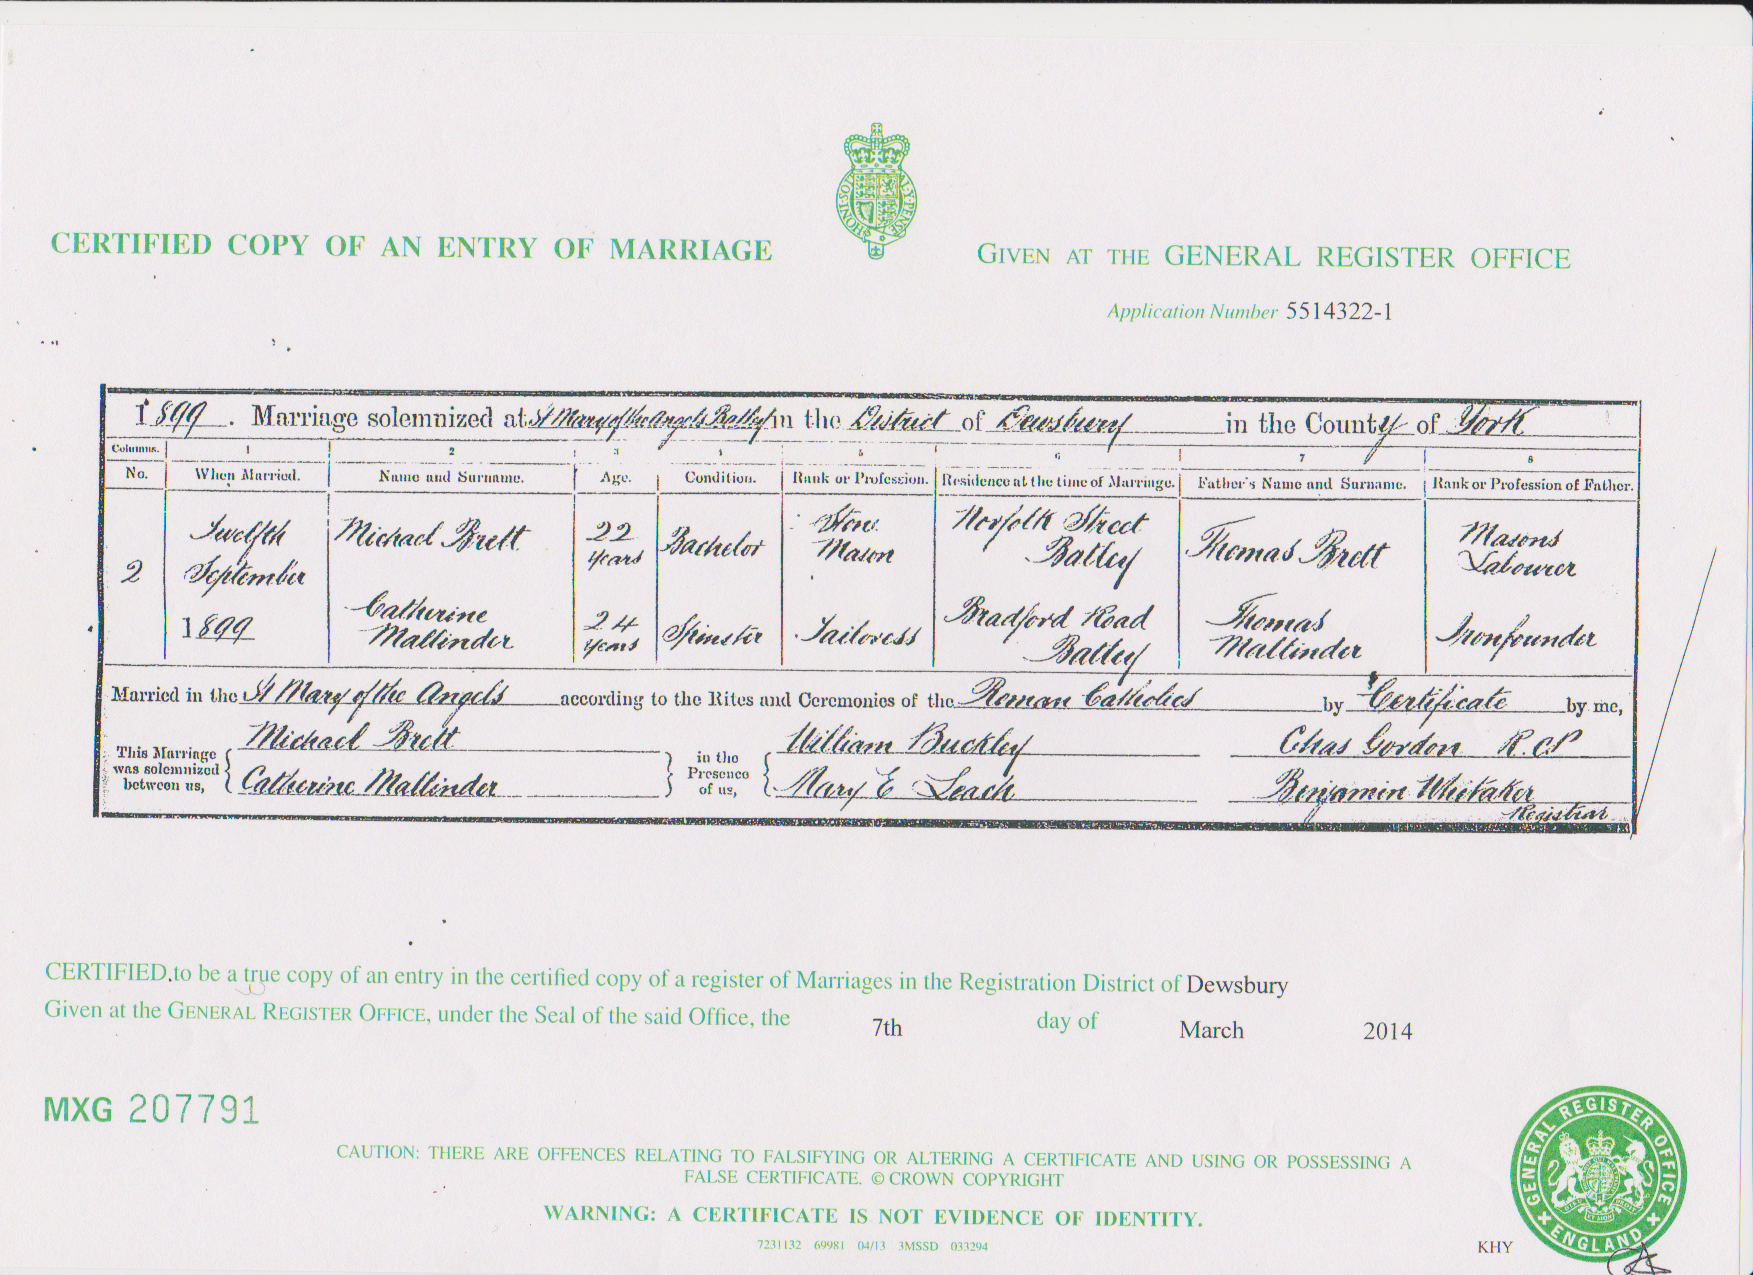 HONI·SOIT·QUI·MAL·Y·PENSE
CERTIFIED COPY OF AN ENTRY OF MARRIAGE
GIVEN AT THE GENERAL REGISTER OFFICE
Application Number 5514322-1
1899. Marriage solemnized at St Mary of the Angels Batley in the District of Dewsbury in the County of York
Columns. 1 2 3 4 5 6 7 8
No. When Married. Name and Surname. Age. Condition. Rank or Profession. Residence at the time of Marriage. Father's Name and Surname. Rank or Profession of Father.
2 Twelfth September 1899
Michael Brett 22 years Bachelor Stone Mason Norfolk Street Batley Thomas Brett Masons Labourer
Catherine Mallinder 24 years Spinster Tailoress Bradford Road Batley Thomas Mallinder Ironfounder
Married in the St Mary of the Angels according to the Rites and Ceremonies of the Roman Catholics by Certificate by me,
This Marriage was solemnized between us, Michael Brett Catherine Mallinder
in the Presence of us, William Buckley Mary E Leach
Chas Gordon R.C.P
Benjamin Whitaker
Registrar
CERTIFIED to be a true copy of an entry in the certified copy of a register of Marriages in the Registration District of Dewsbury
Given at the GENERAL REGISTER OFFICE, under the Seal of the said Office, the 7th day of March 2014
MXG 207791
CAUTION: THERE ARE OFFENCES RELATING TO FALSIFYING OR ALTERING A CERTIFICATE AND USING OR POSSESSING A
FALSE CERTIFICATE. © CROWN COPYRIGHT
WARNING: A CERTIFICATE IS NOT EVIDENCE OF IDENTITY.
7231132 69981 04/13 3MSSD 033294
KHY
GENERAL REGISTER OFFICE
ENGLAND